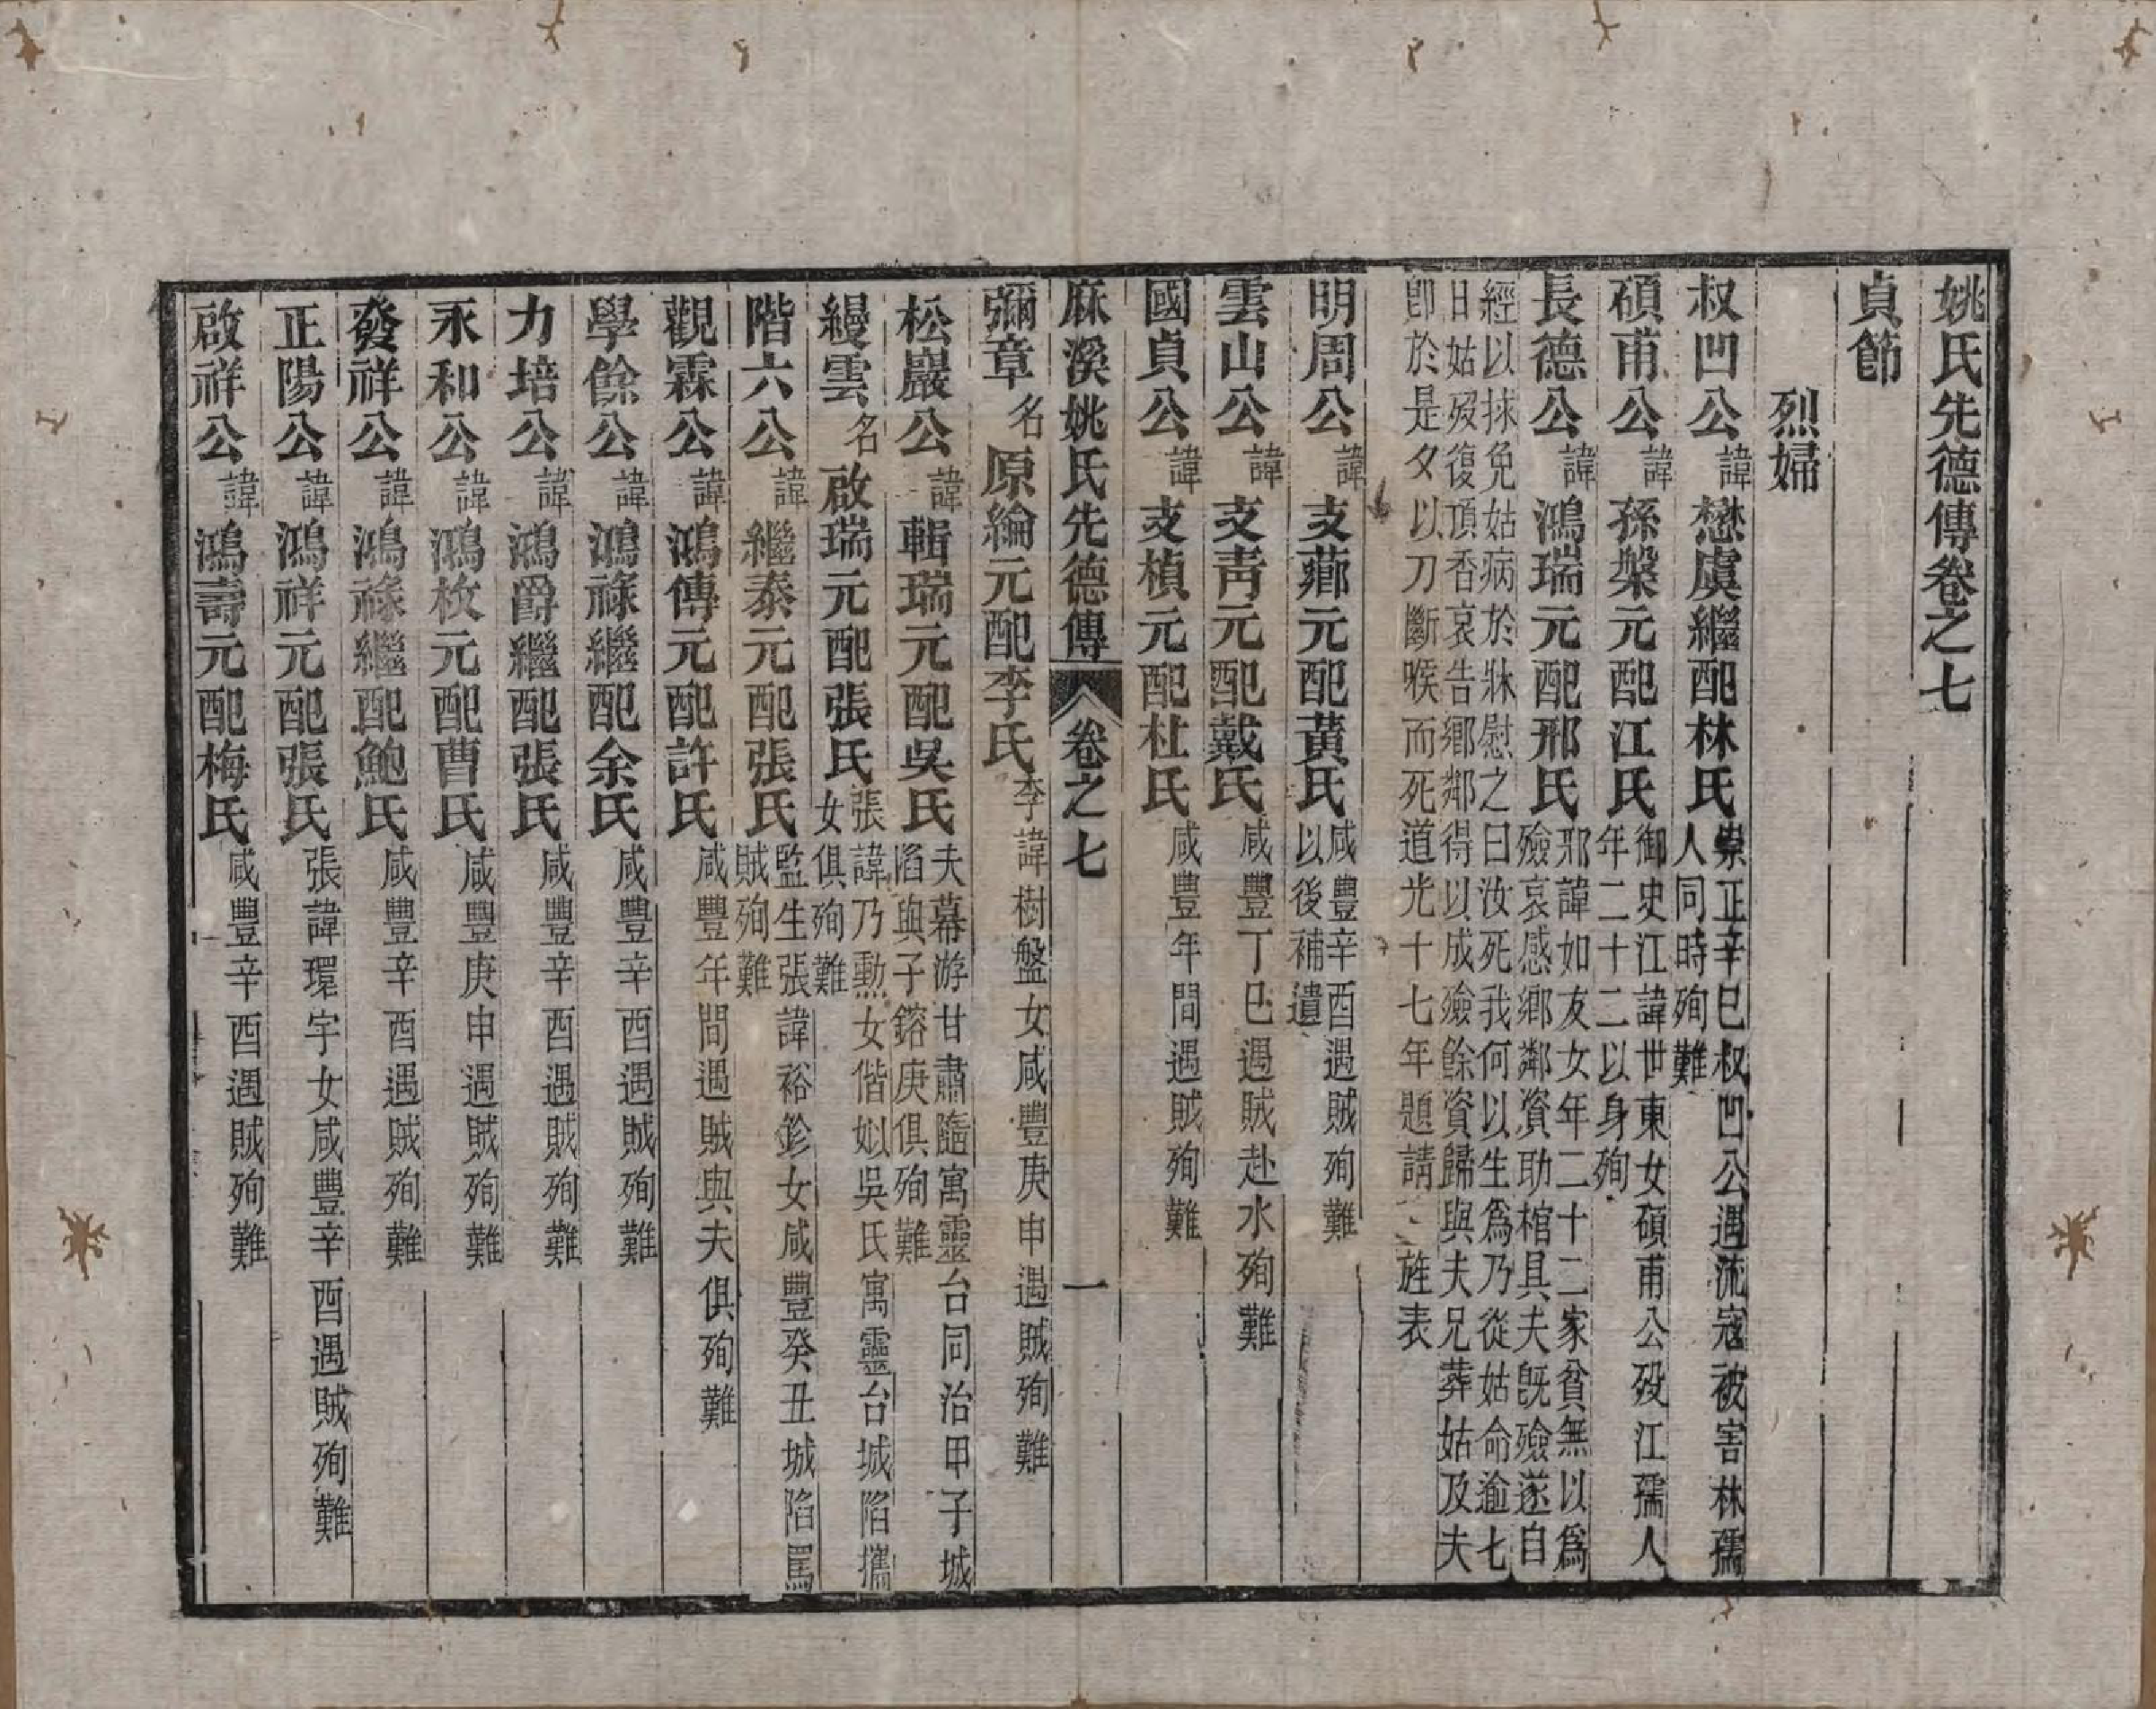 姚氏先德傳卷之七
貞節
烈婦
叔凹公諱懋虞繼配林氏崇正辛巳叔凹公遇流寇被害林孺
人同時殉難
碩甫公諱孫槃元配江氏御史江諱世東女碩甫公歿江孺人
年二十二以身殉
長德公諱鴻瑞元配邢氏邢諱如友女年二十二家貧無以爲
殮哀感鄉鄰資助棺具夫旣殮遂自
經以捄免姑病於牀慰之曰汝死我何以生爲乃從姑命逾七
日姑歿復頂香哀告鄉鄰得以成殮餘資歸與夫兄葬姑及夫
卽於是夕以刀斷喉而死道光十七年題請旌表
明周公諱支薌元配黃氏咸豐辛酉遇賊殉難
以後補遺
雲山公諱支靑元配戴氏咸豐丁巳遇賊赴水殉難
國貞公諱支楨元配杜氏咸豐年間遇賊殉難
麻溪姚氏先德傳 卷之七 一
彌章名原綸元配李氏李諱樹盤女咸豐庚申遇賊殉難
松巖公諱輯瑞元配吳氏夫幕游甘肅隨寓靈台同治甲子城
陷與子鎔庚俱殉難
縵雲名啟瑞元配張氏張諱乃勲女偕姒吳氏寓靈台城陷攜
女俱殉難
階六公諱繼泰元配張氏監生張諱裕鉁女咸豐癸丑城陷罵
賊殉難
觀霖公諱鴻傳元配許氏咸豐年間遇賊與夫俱殉難
學餘公諱鴻祿繼配余氏咸豐辛酉遇賊殉難
力培公諱鴻爵繼配張氏咸豐辛酉遇賊殉難
永和公諱鴻枚元配曹氏咸豐庚申遇賊殉難
發祥公諱鴻祿繼配鮑氏咸豐辛酉遇賊殉難
正陽公諱鴻祥元配張氏張諱環宇女咸豐辛酉遇賊殉難
啟祥公諱鴻壽元配梅氏咸豐辛酉遇賊殉難